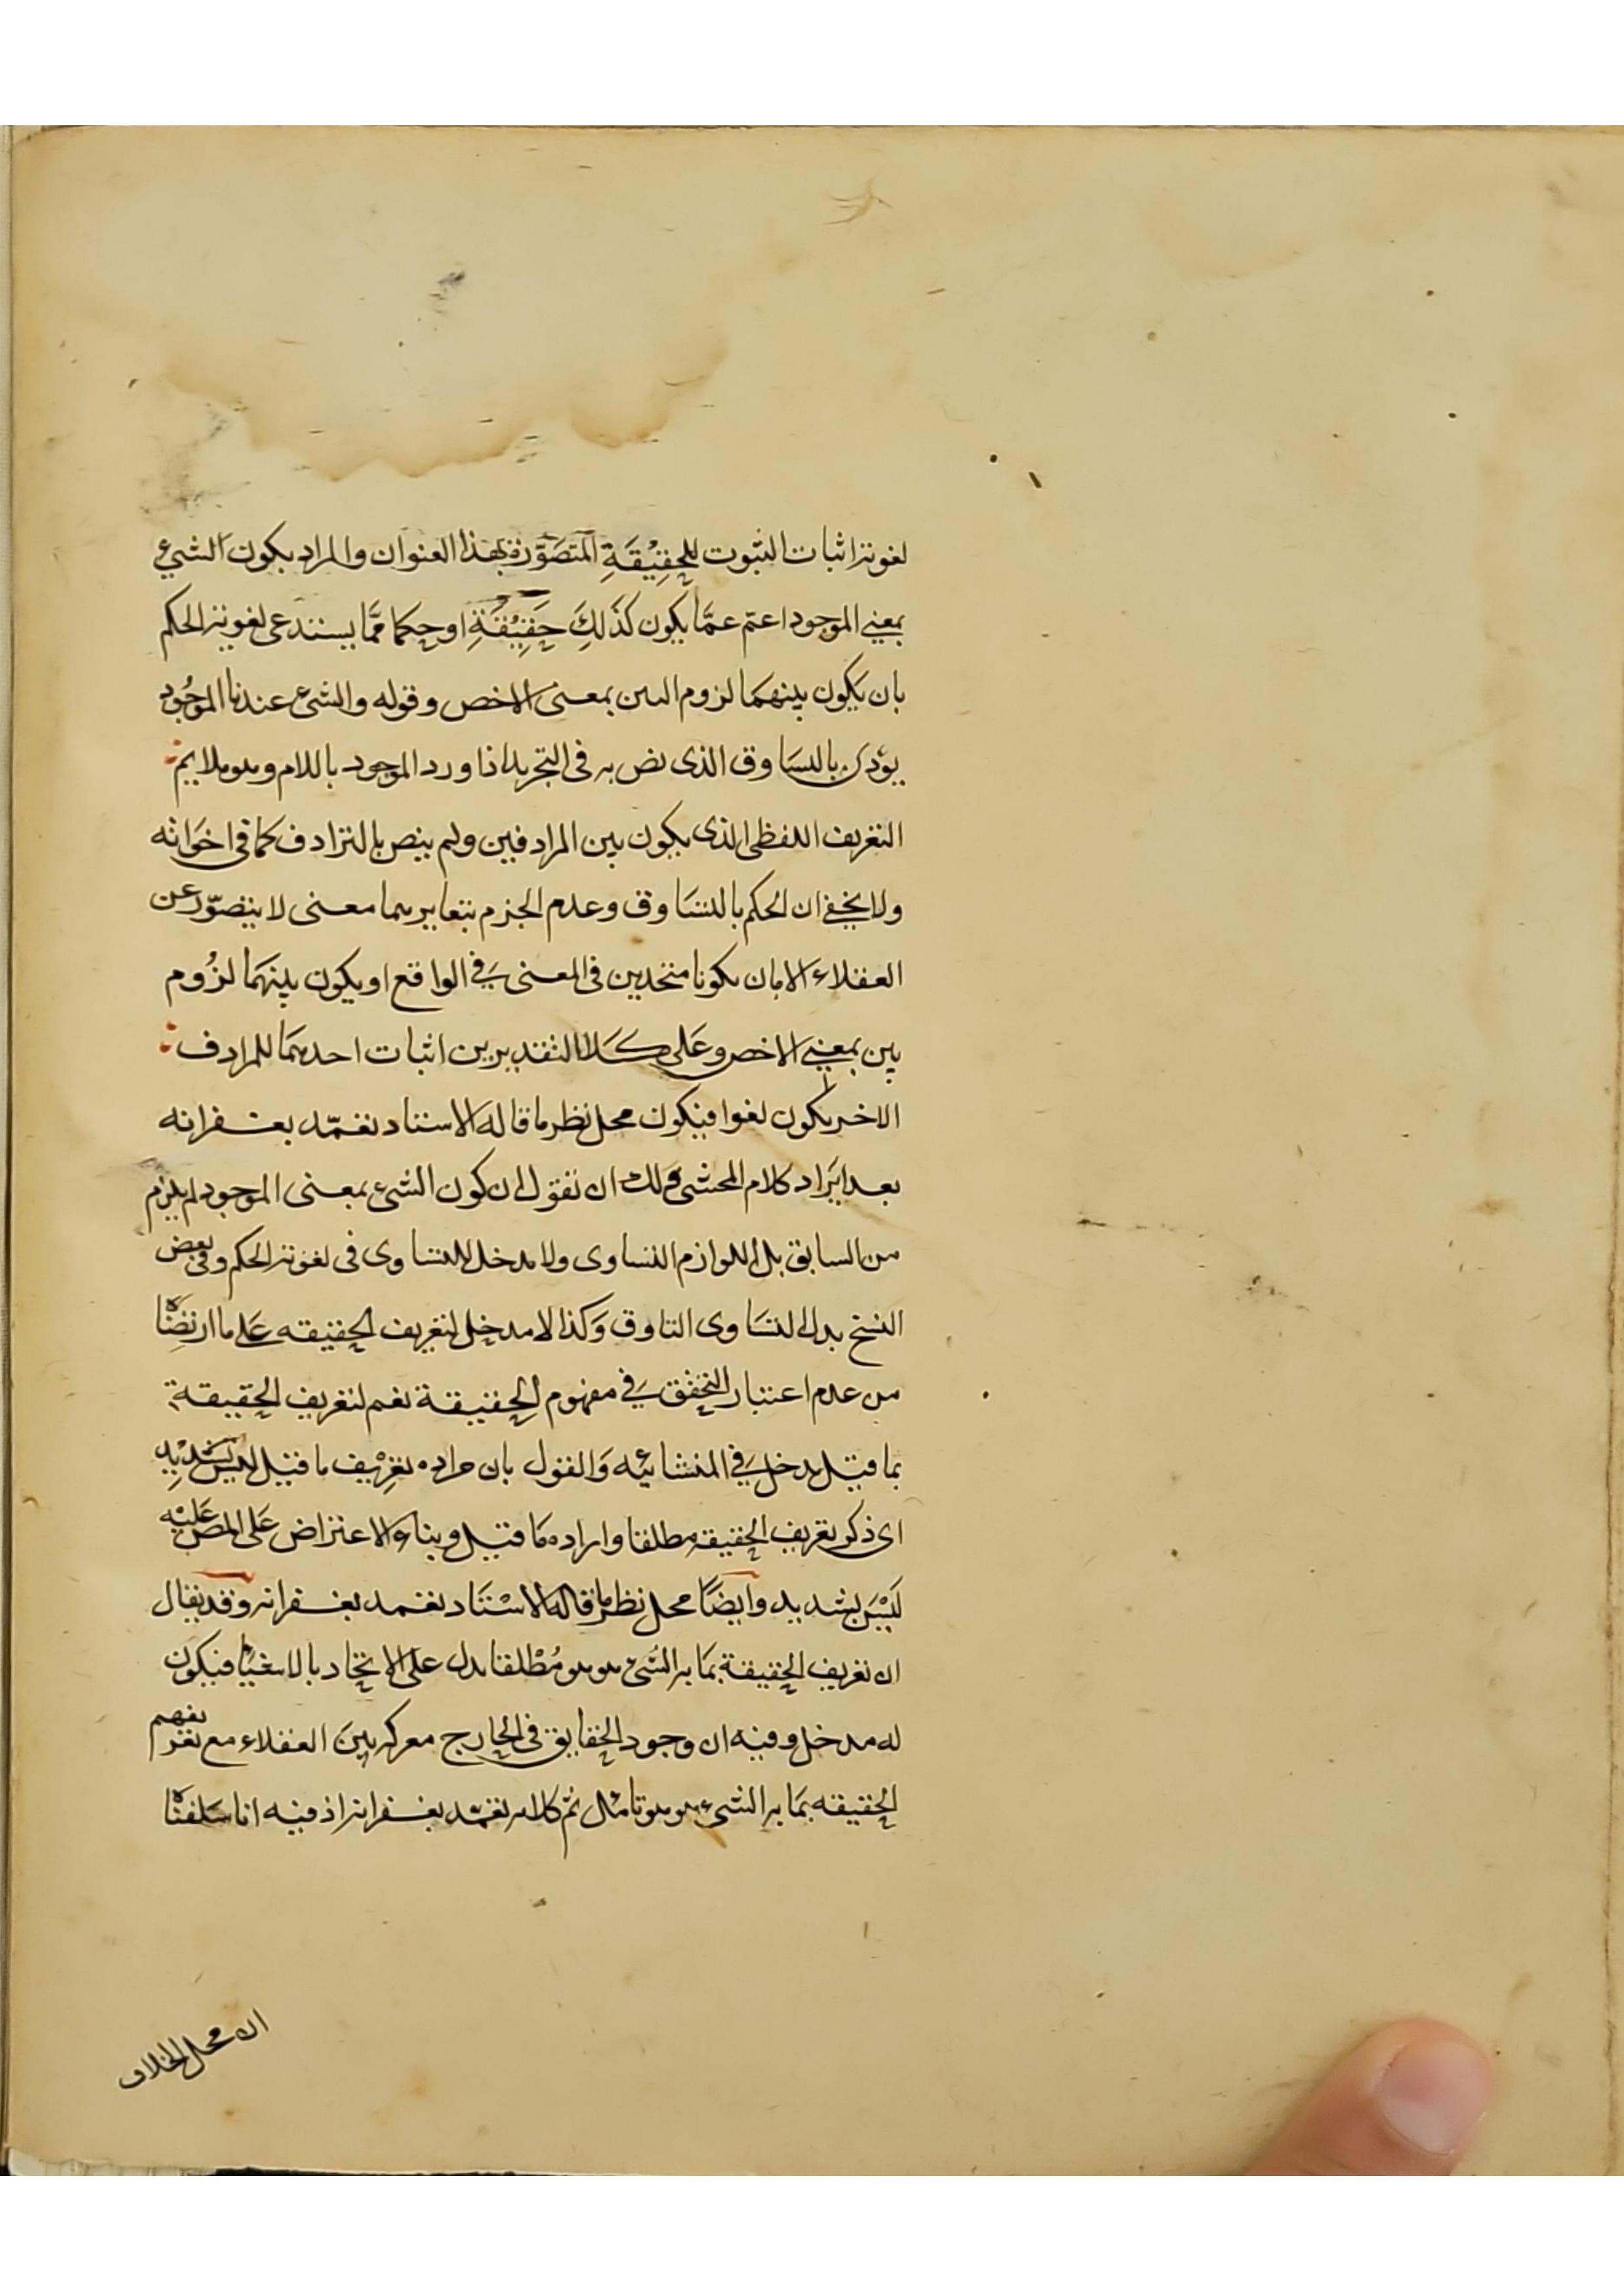 لغوية اثبات الثبوت للحقيقة المتصورة بهذا العنوان والمراد بكون الشيء
بمعنى الموجود اعم عما يكون كذلك حقيقة او حكما مما يستدعى لغوية الحكم
بان يكون بينهما لزوم البين بمعنى الاخص وقوله والشئ عندنا الموجود
يؤدى بالتساوق الذى نص به فى التجريد اذا ورد الموجود باللام وهو ملايم
التعريف اللفظى الذى يكون بين المرادفين ولم ينص بالترادف كما فى اخواته
ولا يخفى ان الحكم بالتساوق وعدم الجزم بتغايرهما معنى لا يتصور عن
العقلاء الا بان يكونا متحدين فى المعنى فى الواقع او يكون بينهما لزوم
بين بمعنى الاخص وعلى كلا التقديرين اثبات احدهما للمرادف
الاخر يكون لغوا فيكون محل نظر ما قاله الاستاد تغمده بغفرانه
بعد ايراد كلام المحشى ولك ان تقول ان كون الشئ بمعنى الموجود لم يلزم
من السابق بل اللوازم التساوى ولا مدخل للتساوى فى لغوية الحكم وفى بعض
النسخ بدل التساوى التاوق وكذا لا مدخل لتعريف الحقيقه على ما ارتضاه
من عدم اعتبار التحقق فى مفهوم الحقيقة نعم لتعريف الحقيقة
بما قيل مدخل فى المنشائيه والقول بان مراده تعريف ما قيل ليس بشديد
اى ذكر تعريف الحقيقه مطلقا واراده ما قيل وبناء الاعتراض على المص عليه
ليس بشديد وايضا محل نظر ما قاله الاستاد تغمد بغفرانه وقد يقال
ان تعريف الحقيقة بما به الشئ هو هو مطلقا يدل على الاتحاد بالاشياء فيكون
له مدخل وفيه ان وجود الحقايق فى الخارج معركة بين العقلاء مع تعريفهم
الحقيقه بما به الشئ هو هو تامل ثم كلامه تغمد بغفرانه اذ فيه انا سلفناه
ان محل الخلاف